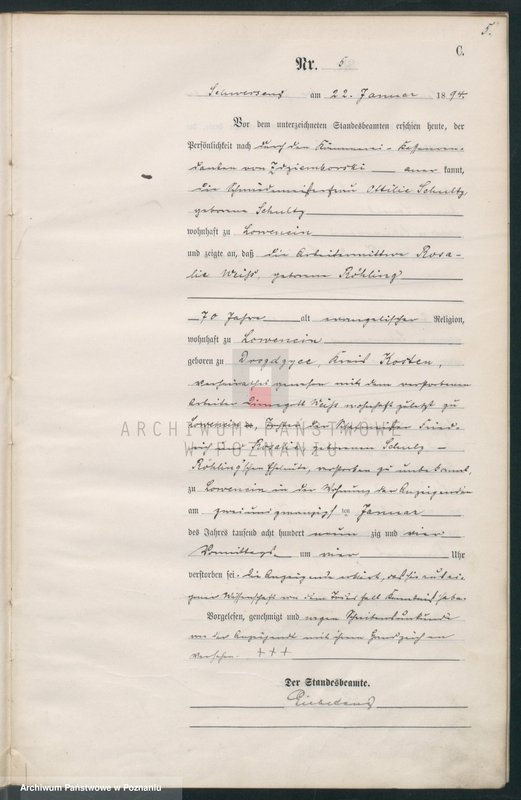 5.
C.
Nr. 5
Schwersenz am 22. Januar 1894.
Vor dem unterzeichneten Standesbeamten erschien heute, der
Persönlichkeit nach durch den Kämmerei-Kassenren-
danten von Zdziemkowski aner kannt,
die Schmiedemeisterfrau Ottilie Schultz
geborene Schultz
wohnhaft zu Lowencin
und zeigte an, daß die Arbeiterwittwe Rosa-
lie Weiss, geborene Röhling
70 Jahre alt evangelischer Religion,
wohnhaft zu Lowencin
geboren zu Kreis Kosten,
verheirathet gewesen mit dem verstorbenen
Arbeiter Weiss wohnhaft zuletzt zu
Lowencin, Tochter der Fried-
rich und Rosalie geborenen Schulz -
Röhling'schen Eheleute, verstorben zu unbekannt,
zu Lowencin in der Wohnung der Anzeigenden
am zweiundzwanzigsten Januar
des Jahres tausend acht hundert neun zig und vier
Vormittags um vier Uhr
verstorben sei. Die Anzeigende erklärt, daß sie aus ei-
gener Wissenschaft von dem Todesfall Kenntniß habe.
Vorgelesen, genehmigt und wegen Schreibensunkunde
von der Anzeigende mit ihrem Handzeichen
versehen. +++
Der Standesbeamte.
ARCHIWUM PAŃSTWOWE
W POZNANIU
Archiwum Państwowe w Poznaniu